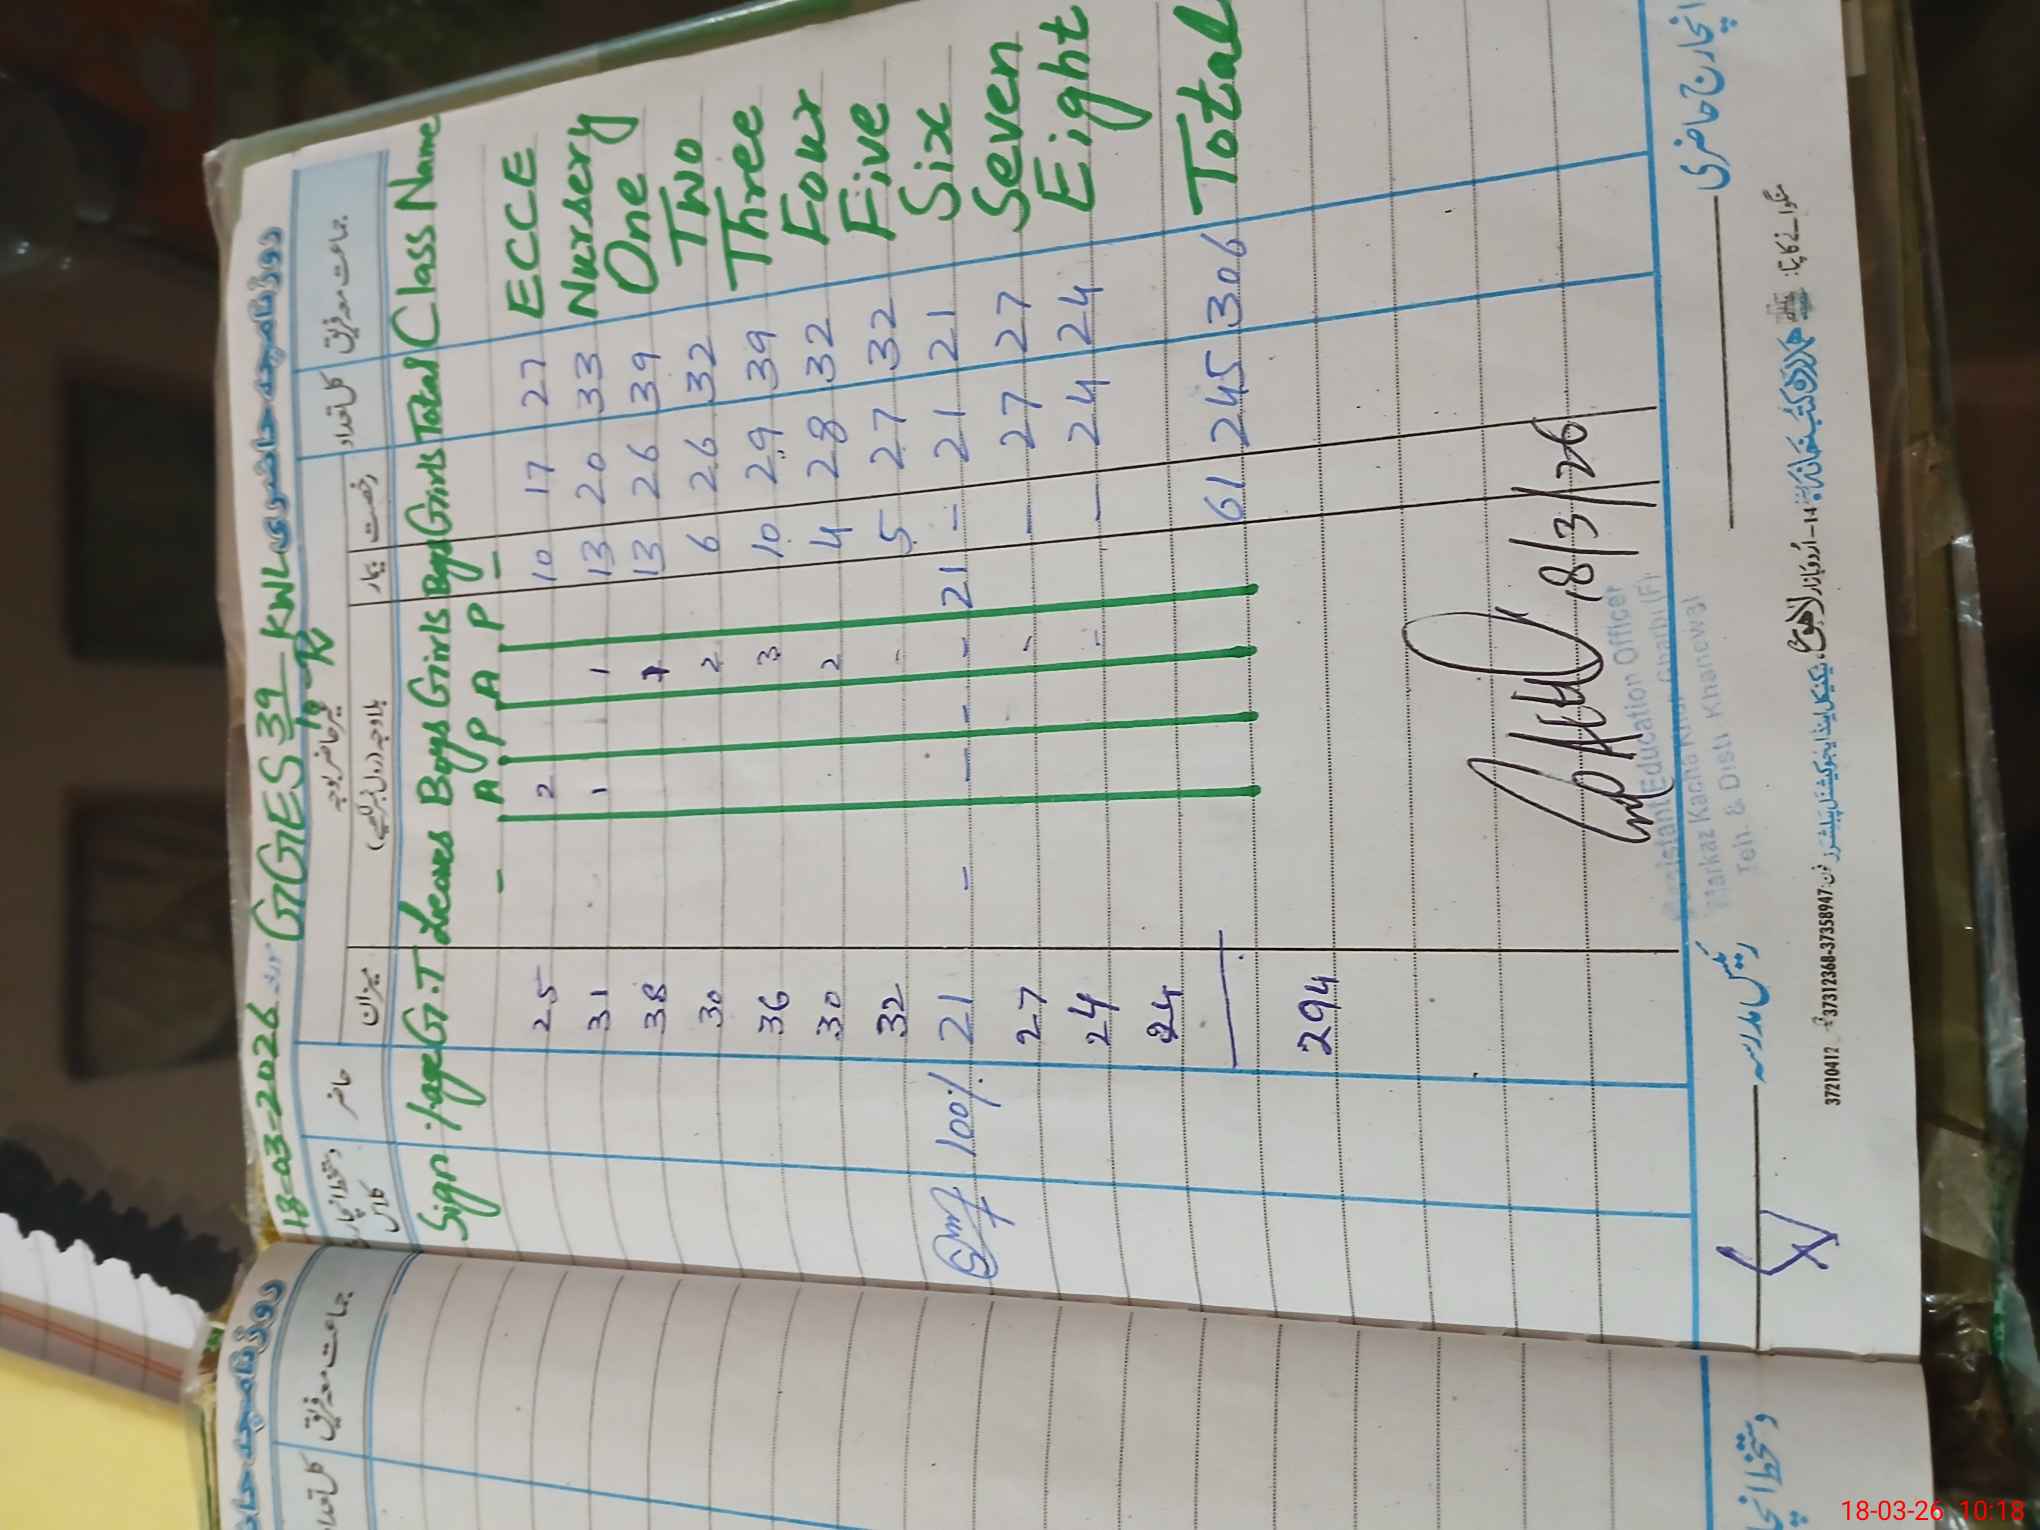 روزنامچہ حاضری
18-03-2026 GGES 39/10-R KWL
جماعت معہ فریق کل تعداد رخصت بیمار غیر حاضر بوجہ بلاوجہ (رول نمبر لکھیے) میزان حاضر دستخط انچارج کلاس
Class Name Total Girls Boys Girls Boys Leaves G.T %age Sign
P A P A
ECCE 27 17 10 2 25
Nursery 33 20 13 1 1 31
One 39 26 13 1 38
Two 32 26 6 2 30
Three 39 29 10 3 36
Four 32 28 4 2 30
Five 32 27 5 - 32
Six 21 21 - 21 - - - - 21 100%
Seven 27 27 — - 27
Eight 24 24 — - 24
24
Total 306 245 61
294
18/3/26
Assistant Education Officer
Teh. & Distt Khanewal
انچارج حاضری
رئیس مدرسہ
منگوانے کا پتا:
14-اردو بازار لاہور
فون: 37358947-37312368
37210412
روزنامچہ
جماعت معہ فریق
کل تعداد
18-03-26 10:18